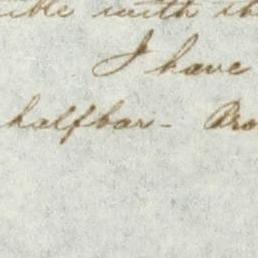 with th
I have
halfbar- Bro